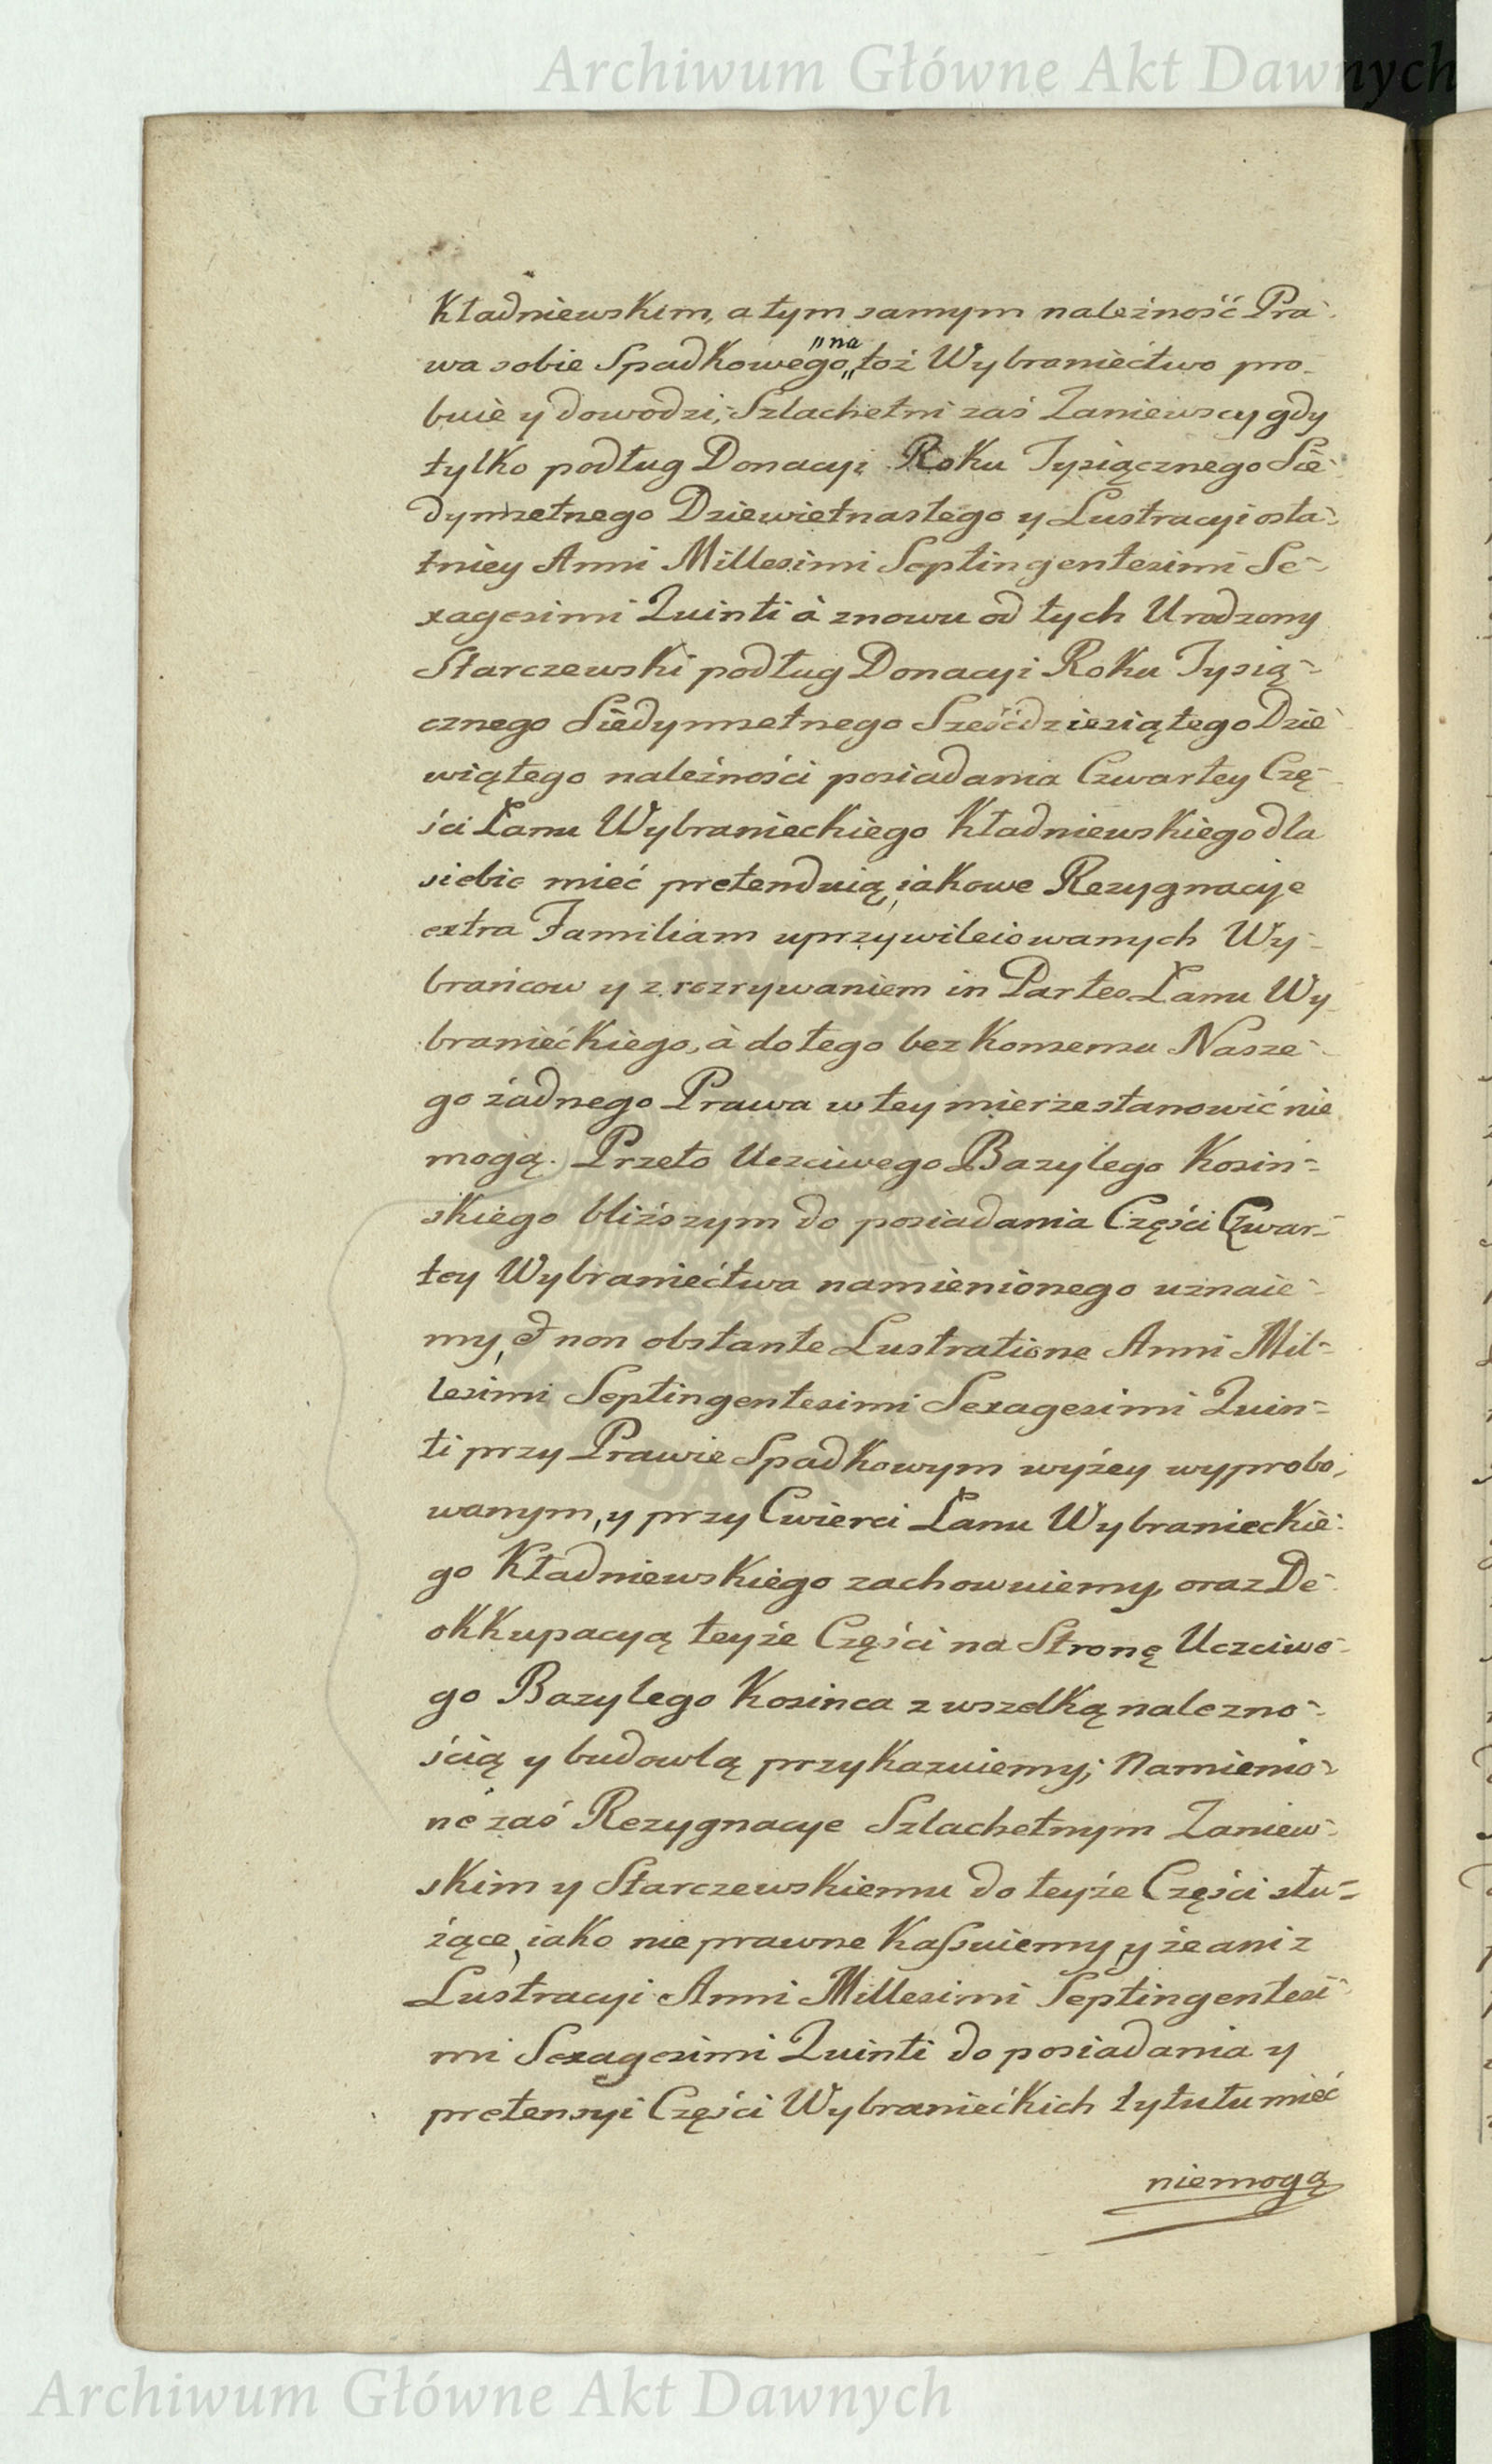 Archiwum Główne Akt Dawnych
Kładniewskim, a tym samym należność Pra-
wa sobie Spadkowego „na toż Wybraniećtwo pro-
buie y dowodzi; Szlachetni zaś Zaniewscy gdy
tylko podług Donacyi Roku Tysiącznego Sie-
dymsetnego Dziewietnastego y Lustracyi osta-
tniey Anni Millesimi Septingentesimi Se-
xagesimi Quinti à znowu od tych Urodzony
Starczewski podług Donacyi Roku Tysią-
cznego Siedymsetnego Sześćdziesiątego Dzie-
wiątego należności posiadania Czwartey Czę-
ści Łanu Wybranieckiego Kładniewskiego dla
siebie mieć pretenduią, iakowe Rezygnacyje
extra Familiam uprzywileiowanych Wy-
brańcow y z rozrywaniem in Partes Łanu Wy-
braniećkiego, à do tego bez Konsensu Nasze-
go żadnego Prawa w tey mierze stanowić nie
mogą. Przeto Uczciwego Bazylego Kosin-
skiego bliższym do posiadania Części Czwar-
tey Wybraniećtwa namienionego uznaie-
my, & non obstante Lustratione Anni Mil-
lesimi Septingentesimi Sexagesimi Quin-
ti przy Prawie Spadkowym wyżey wyprobo-
wanym, y przy Cwierci Łanu Wybranieckie-
go Kładniewskiego zachowuiemy, oraz De-
okkupacyą teyże Części na Stronę Uczciwe-
go Bazylego Kosinca z wszelką nalezno-
ścią y budowlą przykazuiemy; Namienio-
né zaś Rezygnacye Szlachetnym Zaniew-
skim y Starczewskiemu do teyże Części słu-
żące, iako nie prawne Kassuiemy, y że ani z
Lustracyi Anni Millesimi Septingentesi-
mi Sexagesimi Quinti do posiadania y
pretensyi Części Wybraniećkich tytułu mieć
niemogą
Archiwum Główne Akt Dawnych